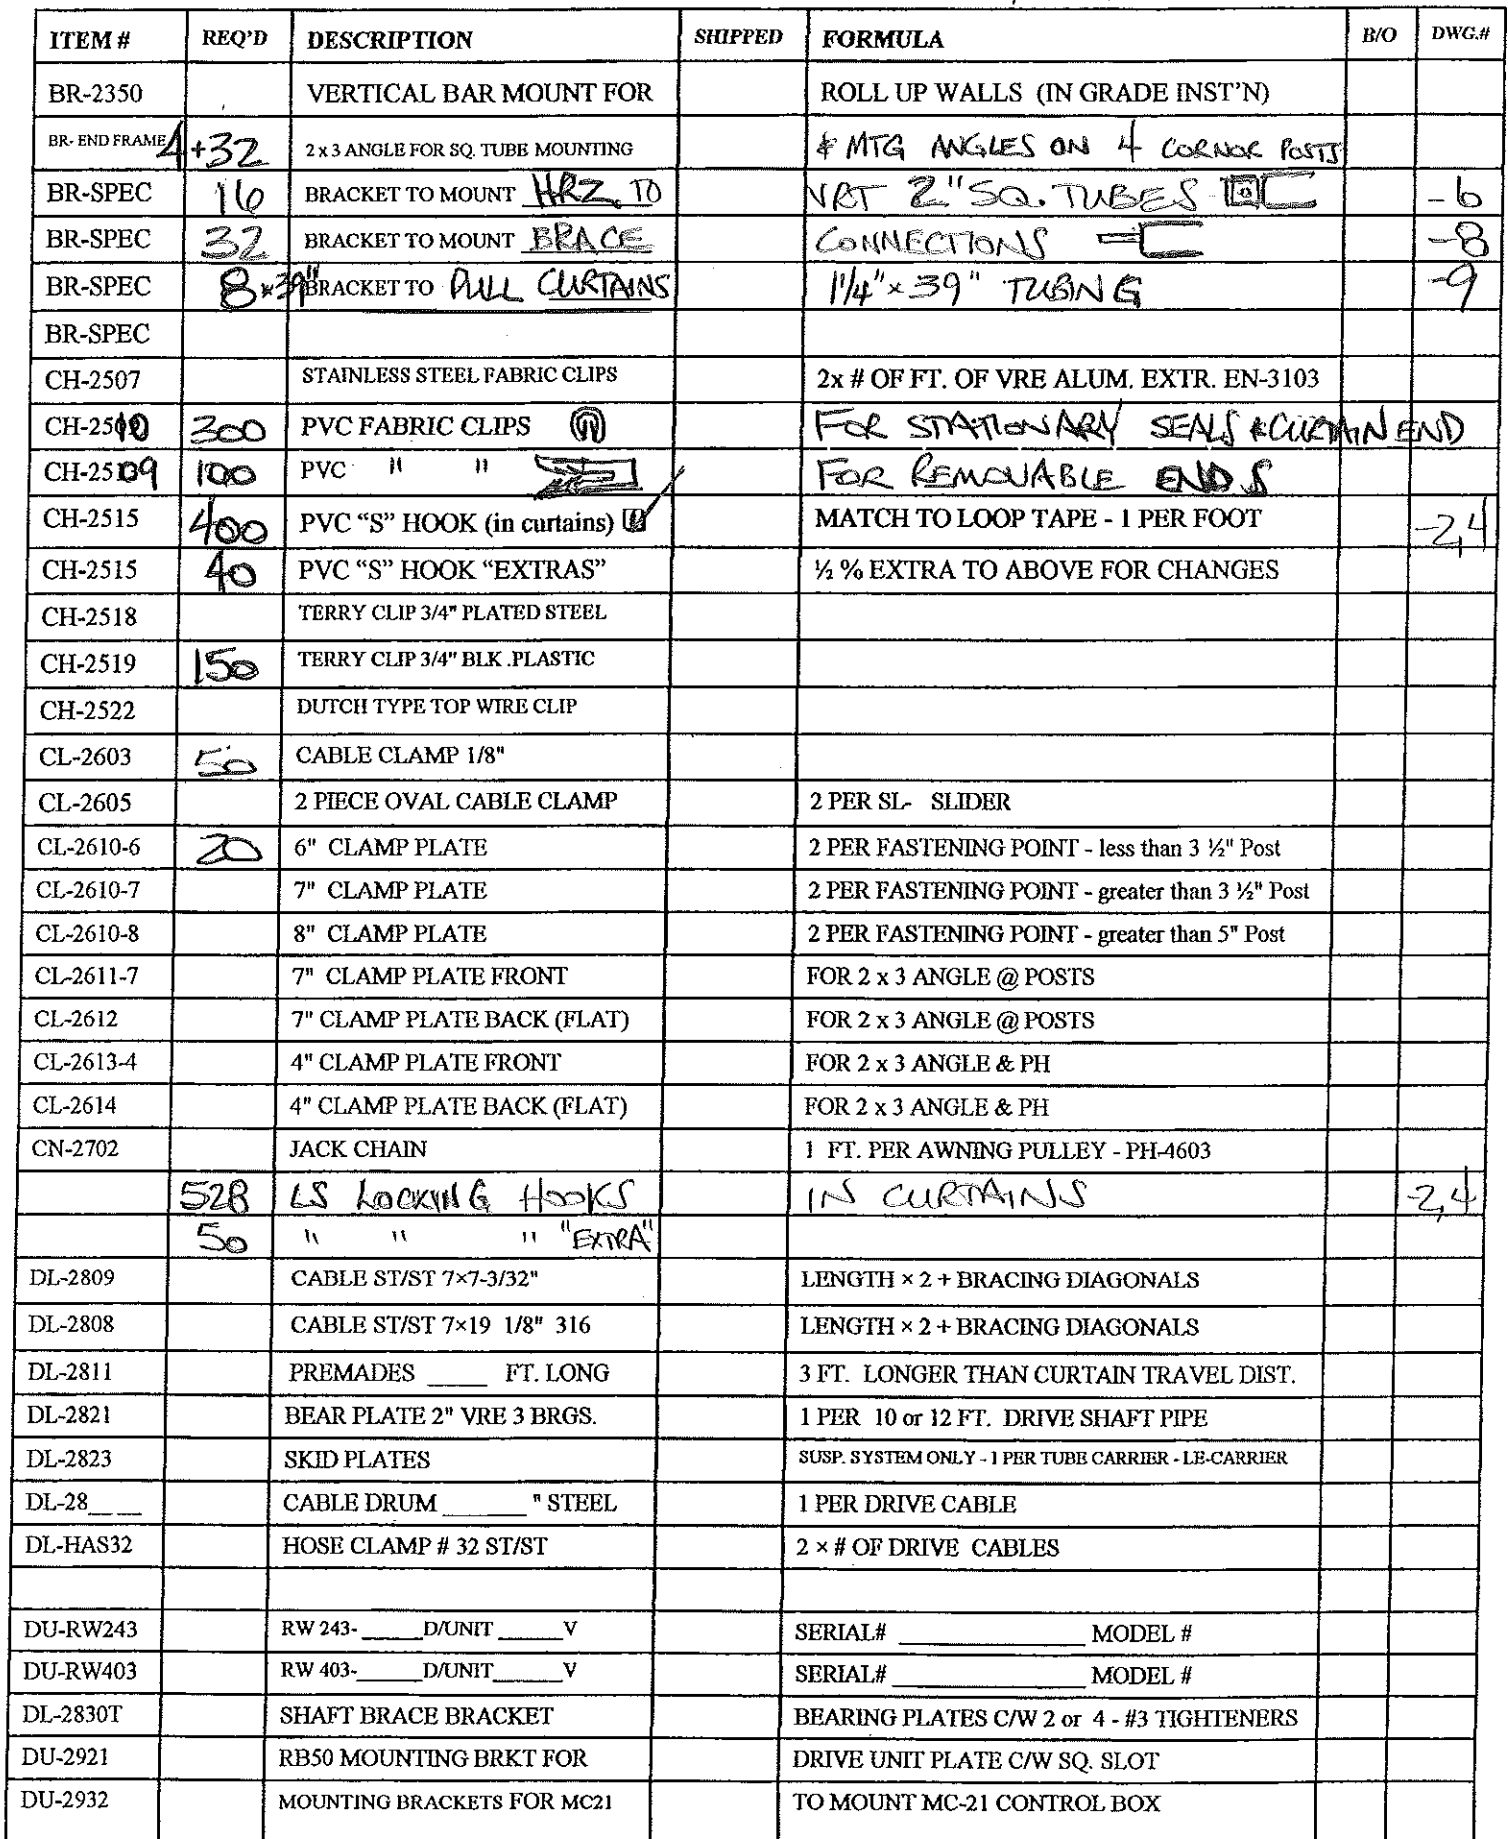 ITEM # REQ'D DESCRIPTION SHIPPED FORMULA B/O DWG.#
BR-2350 VERTICAL BAR MOUNT FOR ROLL UP WALLS (IN GRADE INST'N)
BR- END FRAME 4+32 2 x 3 ANGLE FOR SQ. TUBE MOUNTING & MTG ANGLES ON 4 CORNOR POSTS
BR-SPEC 16 BRACKET TO MOUNT HRZ TO VRT 2" SQ. TUBES -6
BR-SPEC 32 BRACKET TO MOUNT BRACE CONNECTIONS -8
BR-SPEC 8 x 39" BRACKET TO PULL CURTAINS 1 1/4" x 39" TUBING -9
BR-SPEC
CH-2507 STAINLESS STEEL FABRIC CLIPS 2x # OF FT. OF VRE ALUM. EXTR. EN-3103
CH-2510 300 PVC FABRIC CLIPS FOR STATIONARY SEALS & CURTAIN END
CH-2509 100 PVC " " FOR REMOVABLE ENDS
CH-2515 400 PVC "S" HOOK (in curtains) MATCH TO LOOP TAPE - 1 PER FOOT -2,4
CH-2515 40 PVC "S" HOOK "EXTRAS" ½ % EXTRA TO ABOVE FOR CHANGES
CH-2518 TERRY CLIP 3/4" PLATED STEEL
CH-2519 150 TERRY CLIP 3/4" BLK .PLASTIC
CH-2522 DUTCH TYPE TOP WIRE CLIP
CL-2603 50 CABLE CLAMP 1/8"
CL-2605 2 PIECE OVAL CABLE CLAMP 2 PER SL- SLIDER
CL-2610-6 20 6" CLAMP PLATE 2 PER FASTENING POINT - less than 3 ½" Post
CL-2610-7 7" CLAMP PLATE 2 PER FASTENING POINT - greater than 3 ½" Post
CL-2610-8 8" CLAMP PLATE 2 PER FASTENING POINT - greater than 5" Post
CL-2611-7 7" CLAMP PLATE FRONT FOR 2 x 3 ANGLE @ POSTS
CL-2612 7" CLAMP PLATE BACK (FLAT) FOR 2 x 3 ANGLE @ POSTS
CL-2613-4 4" CLAMP PLATE FRONT FOR 2 x 3 ANGLE & PH
CL-2614 4" CLAMP PLATE BACK (FLAT) FOR 2 x 3 ANGLE & PH
CN-2702 JACK CHAIN 1 FT. PER AWNING PULLEY - PH-4603
528 LS LOCKING HOOKS IN CURTAINS -2,4
50 " " " "EXTRA"
DL-2809 CABLE ST/ST 7×7-3/32" LENGTH × 2 + BRACING DIAGONALS
DL-2808 CABLE ST/ST 7×19 1/8" 316 LENGTH × 2 + BRACING DIAGONALS
DL-2811 PREMADES ____ FT. LONG 3 FT. LONGER THAN CURTAIN TRAVEL DIST.
DL-2821 BEAR PLATE 2" VRE 3 BRGS. 1 PER 10 or 12 FT. DRIVE SHAFT PIPE
DL-2823 SKID PLATES SUSP. SYSTEM ONLY - 1 PER TUBE CARRIER - LE-CARRIER
DL-28__ __ CABLE DRUM ______ " STEEL 1 PER DRIVE CABLE
DL-HAS32 HOSE CLAMP # 32 ST/ST 2 × # OF DRIVE CABLES
DU-RW243 RW 243- _____D/UNIT _____V SERIAL# ______________ MODEL #
DU-RW403 RW 403-_____D/UNIT_____V SERIAL# ______________ MODEL #
DL-2830T SHAFT BRACE BRACKET BEARING PLATES C/W 2 or 4 - #3 TIGHTENERS
DU-2921 RB50 MOUNTING BRKT FOR DRIVE UNIT PLATE C/W SQ. SLOT
DU-2932 MOUNTING BRACKETS FOR MC21 TO MOUNT MC-21 CONTROL BOX